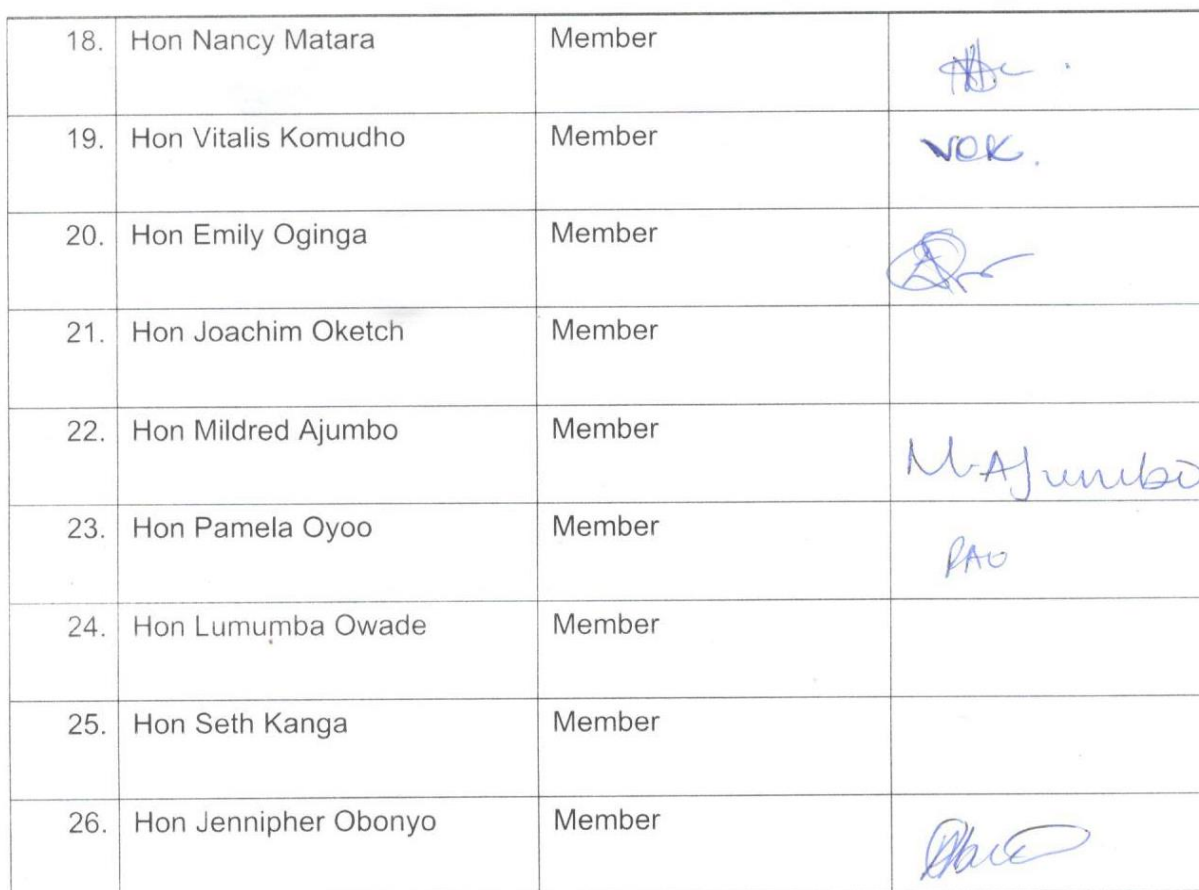 18. Hon Nancy Matara Member
19. Hon Vitalis Komudho Member VOK.
20. Hon Emily Oginga Member
21. Hon Joachim Oketch Member
22. Hon Mildred Ajumbo Member M. Ajumbo
23. Hon Pamela Oyoo Member PAO
24. Hon Lumumba Owade Member
25. Hon Seth Kanga Member
26. Hon Jennipher Obonyo Member